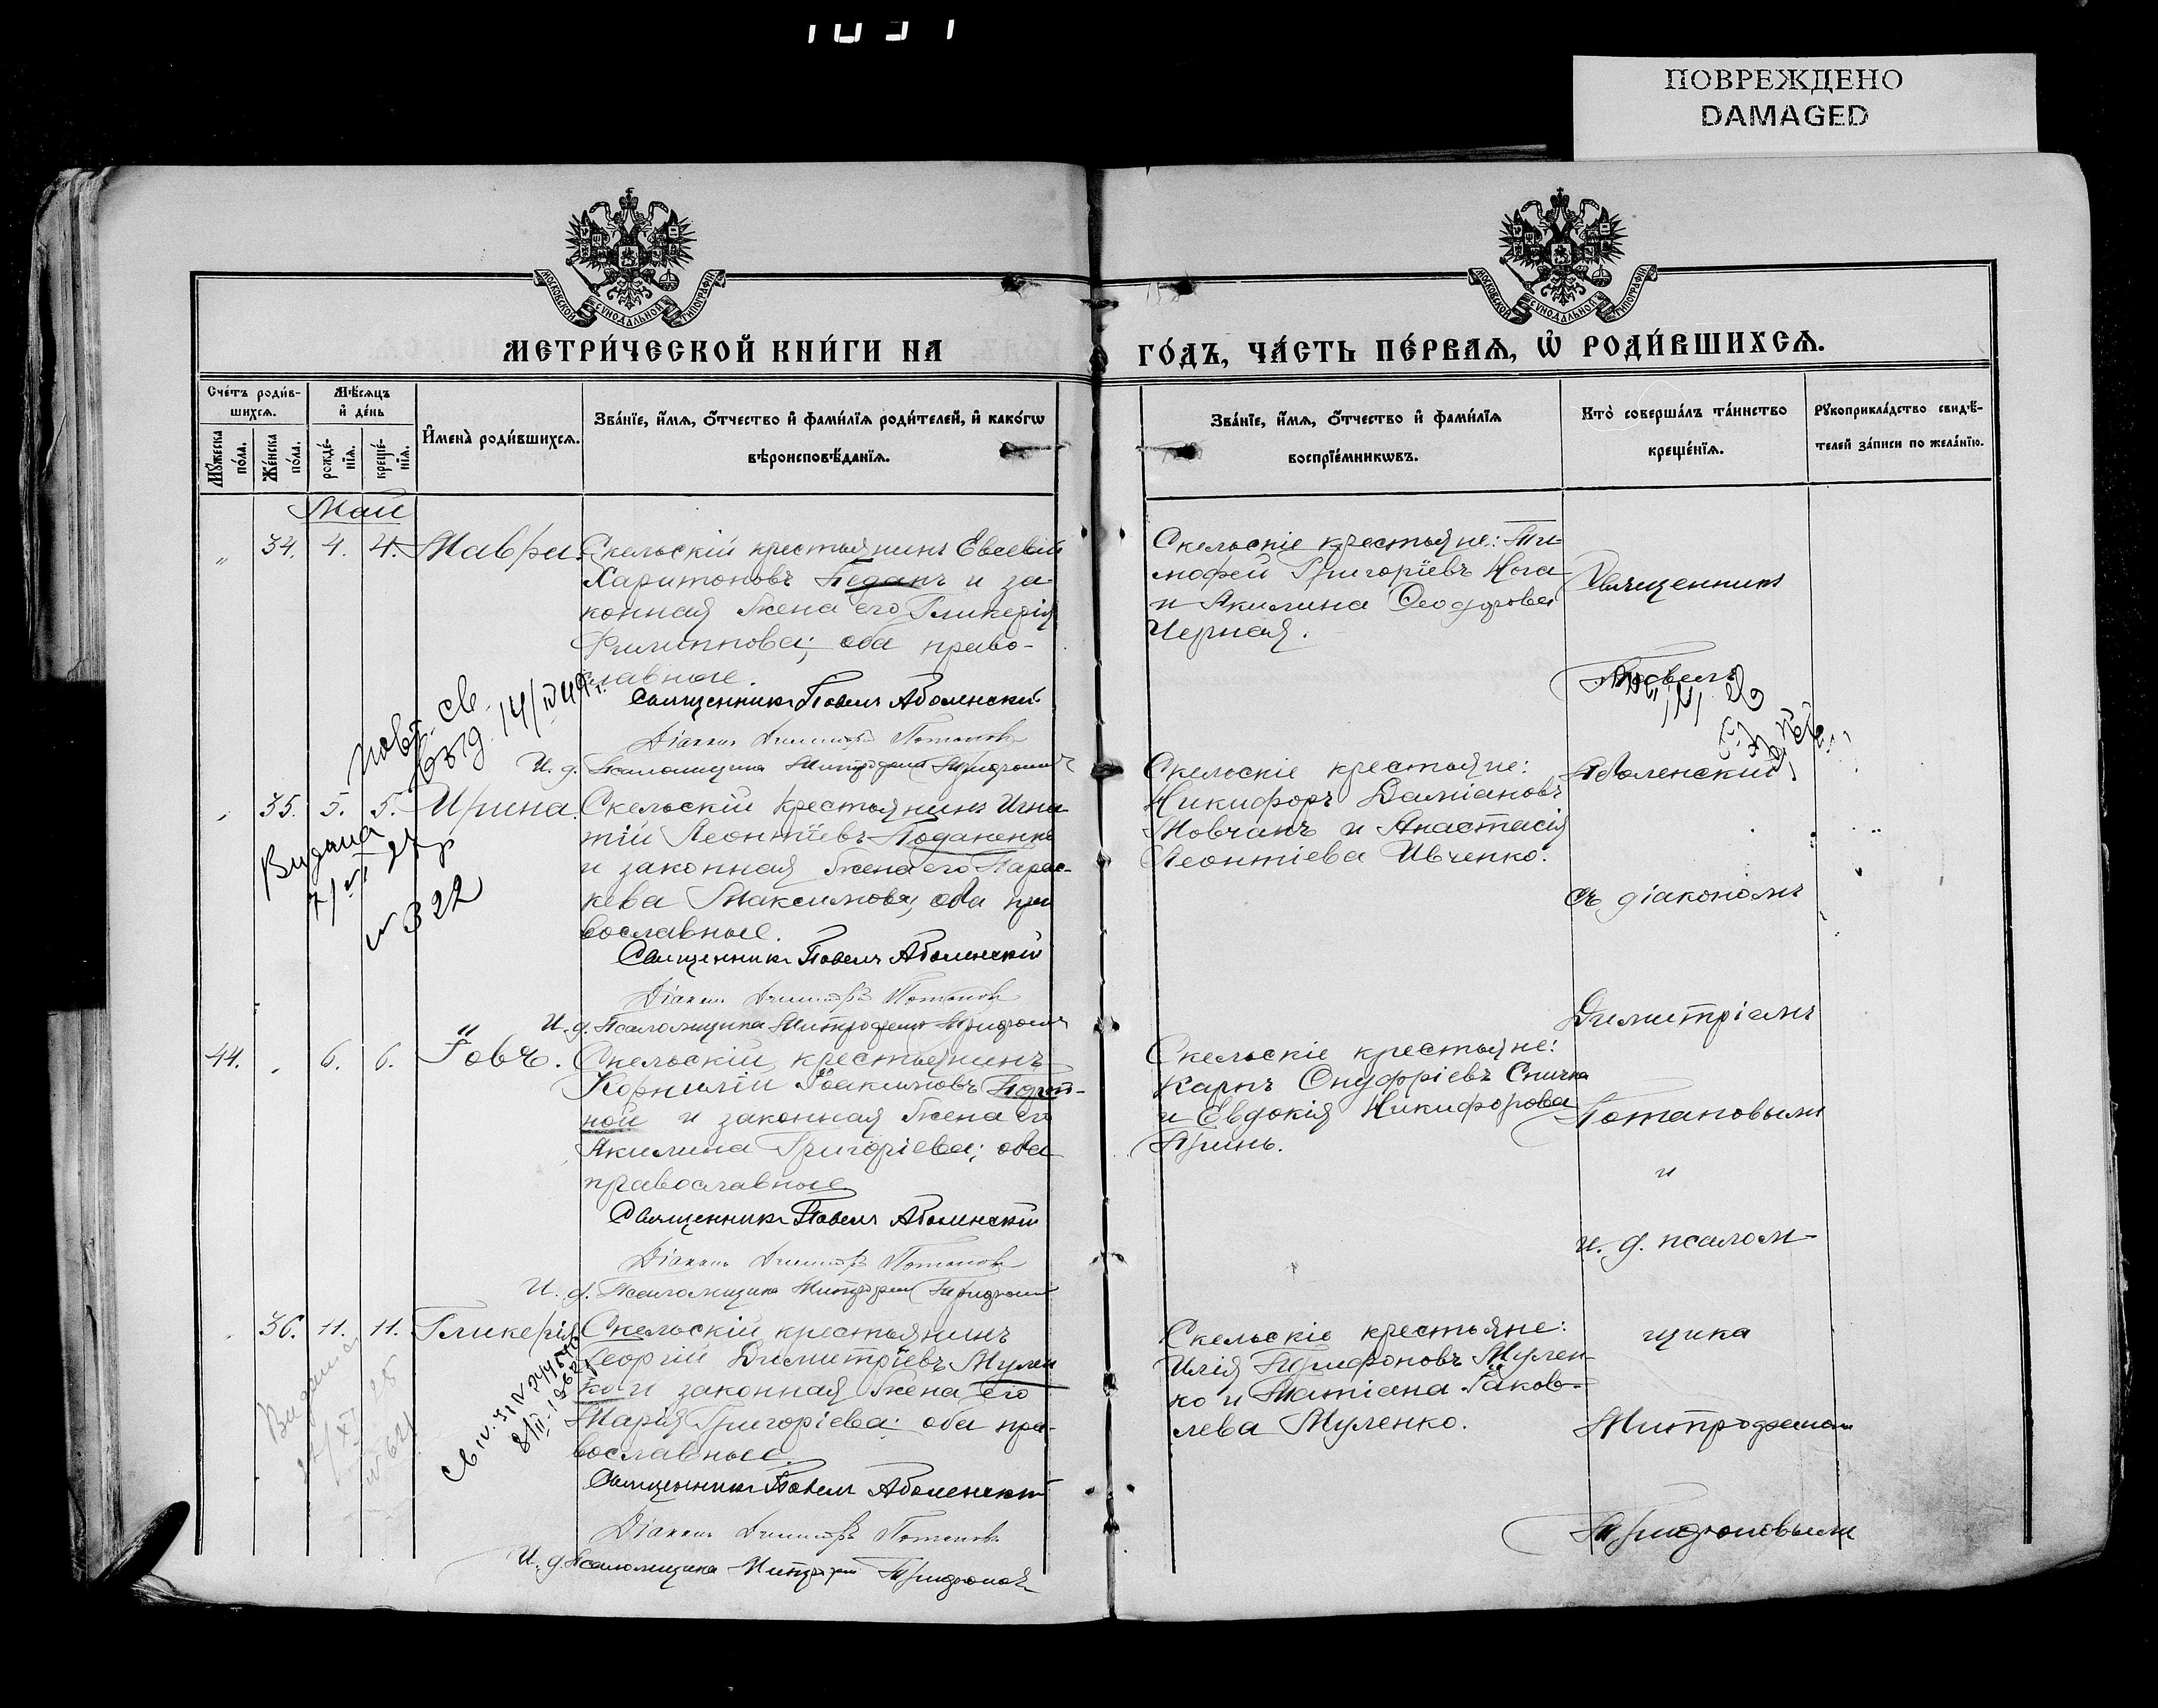 ПОВРЕЖДЕНО
DAMAGED
МОСКОВСКОЙ СѴНОДАЛЬНОЙ ТИПОГРАФІИ
МОСКОВСКОЙ СѴНОДАЛЬНОЙ ТИПОГРАФІИ
МЕТРИ́ЧЕСКОЙ КНИ́ГИ НА
ГО́ДЪ, ЧА́СТЬ ПЕ́РВАЯ, Ѡ РОДИ́ВШИХСЯ.
Сче́тъ роди́в-
шихся.
Мѣ́сяцъ
и де́нь
Му́жеска
по́ла.
Же́нска
по́ла.
рожде́-
нїя.
креще́-
нїя.
Имена̀ роди́вшихся.
Зва́нїе, и́мя, о́тчество и фами́лїя роди́телей, и како́гѡ
вѣроисповѣ́данїя.
Зва́нїе, и́мя, о́тчество и фами́лїя
воспрїе́мникѡвъ.
Кто̀ соверша́лъ та́инство
креще́нїя.
Рꙋкоприкла́дство свидѣ́-
телей за́писи по жела́нїю.
Май
„ 34. 4. 4. Мавра. Скельскій крестьянинъ Евсевій
Харитоновъ Педанъ и за-
конная жена его Гликерія
Филиппова; оба право-
славные.
Священникъ Павелъ Аболенскій
Діаконъ Димитрій Потаповъ
И. д. Псаломщика Митрофанъ
Скельскіе крестьяне: Ти-
мофей Григоріевъ Нога
и Акилина Ѳеодорова
Черная.
Священникъ
Павелъ
Аболенскій
35. 5. 5. Ирина. Скельскій крестьянинъ Игна-
тій Леонтіевъ Поданенко
и законная жена его Парас-
кева Максимова, оба пра
вославные.
Священникъ Павелъ Аболенскій
Діаконъ Димитрій Потаповъ
И. д. Псаломщика Митрофанъ
Видана
№ 322
Скельскіе крестьяне:
Никифоръ Даміановъ
Мовчанъ и Анастасія
Леонтіева Ивченко.
съ діакономъ
Димитріемъ
44. „ 6. 6. Іовъ. Скельскій крестьянинъ
Корнилій Іоакимовъ
ной и законная жена его
Акилина Григоріева; оба
православные
Священникъ Павелъ Аболенскій
Діаконъ Димитрій Потаповъ
И. д. Псаломщика Митрофанъ
Скельскіе крестьяне:
Карпъ Онуфріевъ Спичка
и Евдокія Никифорова
Потаповымъ
и
и. д. псалом-
36. 11. 11. Гликерія Скельскій крестьянинъ
Георгій Димитріевъ Мулен
ко и законная жена его
Марія Григоріева: оба пра-
вославные.
Священникъ Павелъ Аболенскій
Діаконъ Димитрій Потаповъ
И. д. Псаломщика Митрофанъ
Скельскіе крестьяне:
Илія Трифоновъ Мулен-
ко и Татіана Іаков-
лева Муленко.
щика
Митрофаномъ